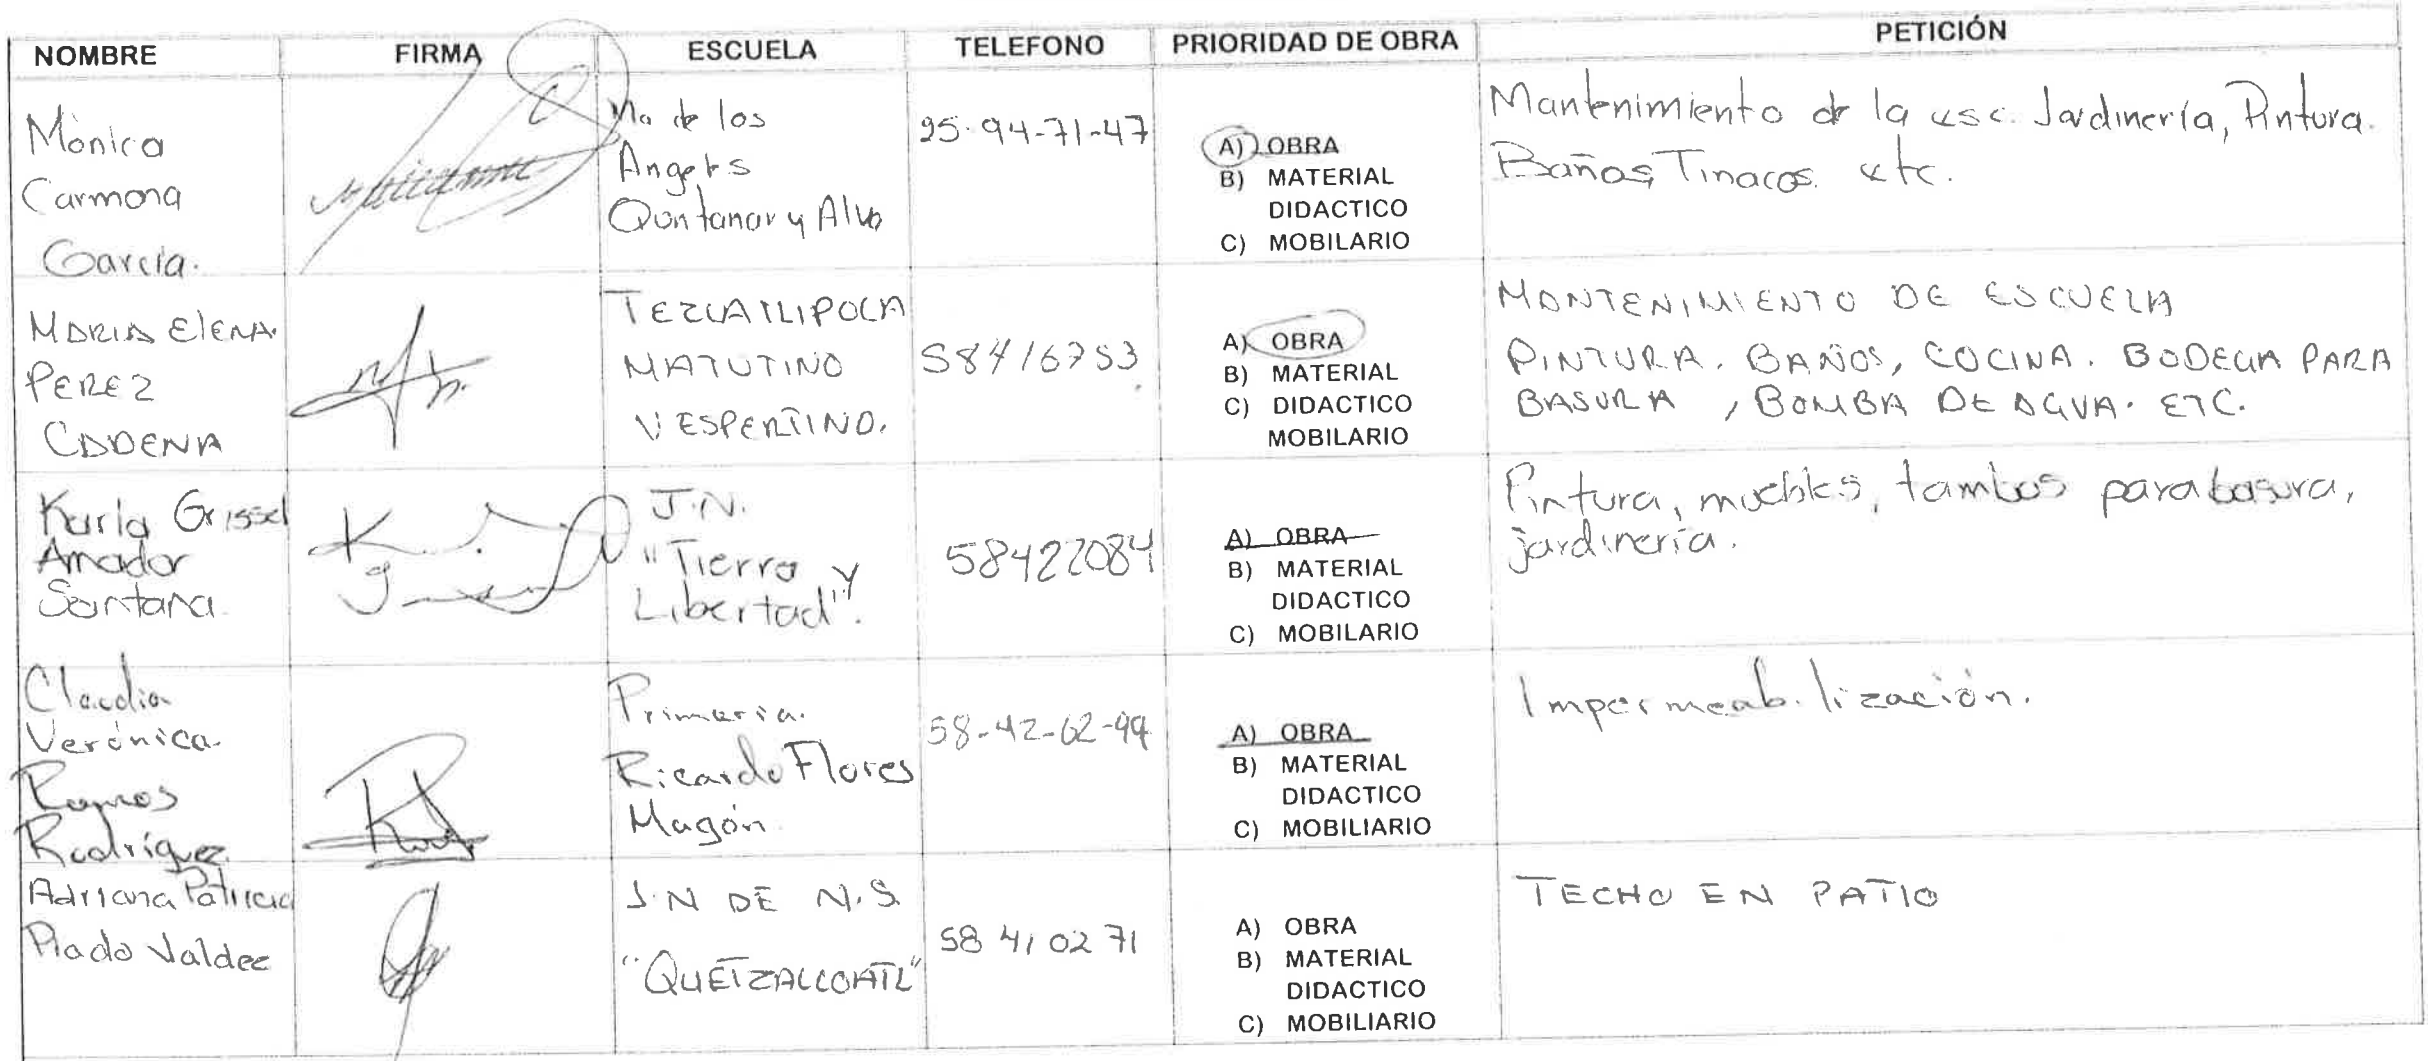 NOMBRE FIRMA ESCUELA TELEFONO PRIORIDAD DE OBRA PETICIÓN
Mónica
Carmona
García.
Ma de los
Angeles
Quntanar y Alva
25-94-71-47
A) OBRA
B) MATERIAL
DIDACTICO
C) MOBILARIO
Mantenimiento de la esc. Jardinería, Pintura.
Baños, Tinacos. etc.
MARIA ELENA
PEREZ
CADENA
TEZCATLIPOCA
MATUTINO
VESPERTINO.
58416753
A) OBRA
B) MATERIAL
C) DIDACTICO
MOBILARIO
MANTENIMIENTO DE ESCUELA
PINTURA. BAÑOS, COCINA. BODEGA PARA
BASURA, BOMBA DE AGUA. ETC.
Karla Grissel
Amador
Santana.
J.N.
"Tierra y
Libertad".
58422084
A) OBRA
B) MATERIAL
DIDACTICO
C) MOBILARIO
Pintura, muebles, tambos para basura,
jardinería.
Claudia
Verónica
Ramos
Rodríguez
Primaria.
Ricardo Flores
Magón.
58-42-62-99
A) OBRA
B) MATERIAL
DIDACTICO
C) MOBILIARIO
Impermeabilización.
Adriana Patricia
Prado Valdez
J.N DE N.S.
"QUETZALCOATL"
58 41 02 71
A) OBRA
B) MATERIAL
DIDACTICO
C) MOBILIARIO
TECHO EN PATIO